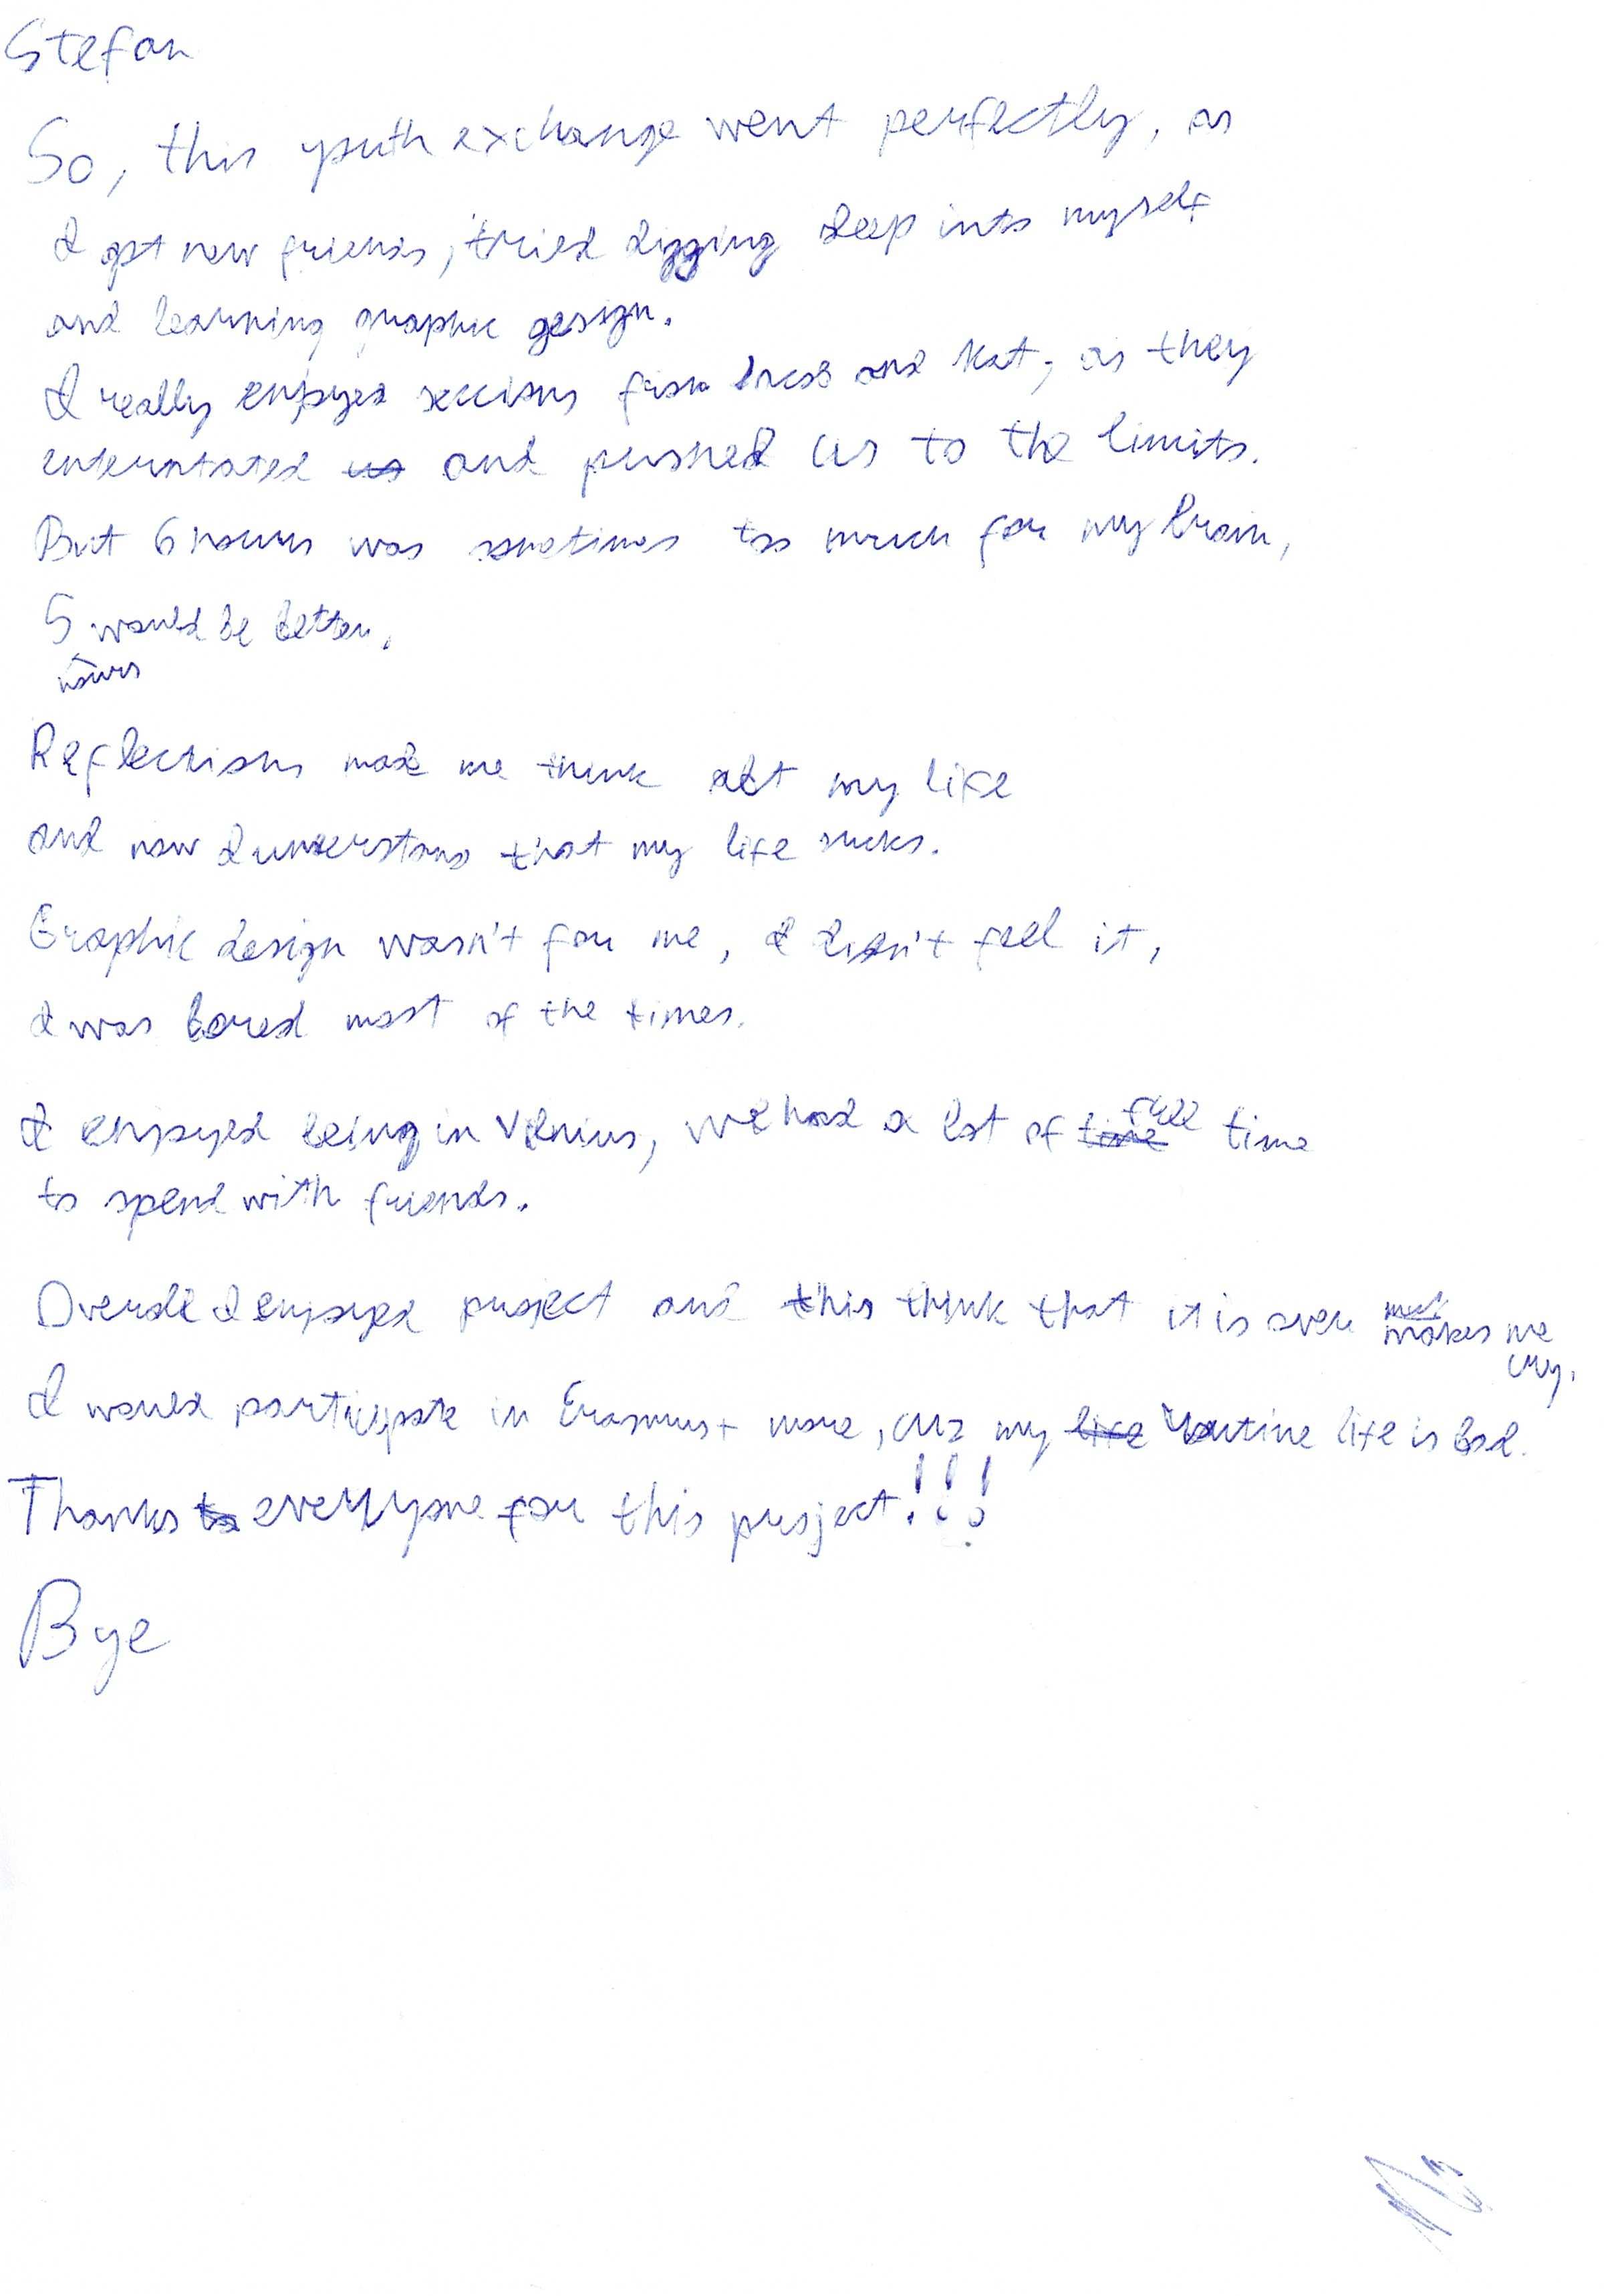 Stefan
So, this youth exchange went perfectly, as
I got new friends, tried digging deep into myself
and learning graphic gesign.
I really enjoyed and Kat, as they
us and pushed us to the limits.
But 6 hours was sometimes too much for my brain,
5 would be better.
hours
Reflections made me think abt my life
and now I understand that my life sucks.
Graphic design wasn't for me, I didn't feel it,
I was bored most of the times.
I enjoyed being in Vilnius, we had a lot of time free time
to spend with friends.
Overall I enjoyed project and this think that it is over makes me
cry.
I would participate in Erasmus+ more, cuz my life routine life is bad.
Thanks to everyone for this project!!!
Bye